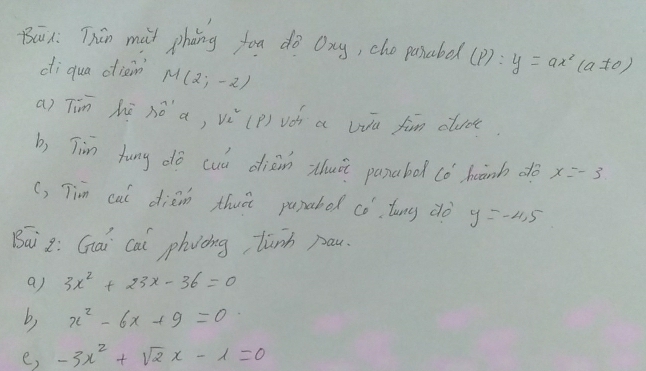 Bài 1: Trên mặt phẳng tọa độ Oxy, cho parabol (P): y = ax² (a ≠ 0)
đi qua điểm M(2; -2)
a) Tìm hệ số a, vẽ (P) với a vừa tìm được.
b, Tìm tung độ của điểm thuộc parabol có hoành độ x = -3
c, Tìm các điểm thuộc parabol có tung độ y = -4,5
Bài 2: Giải các phương trình sau.
a) 3x² + 23x - 36 = 0
b, x² - 6x + 9 = 0
c, -3x² + √2 x - 1 = 0